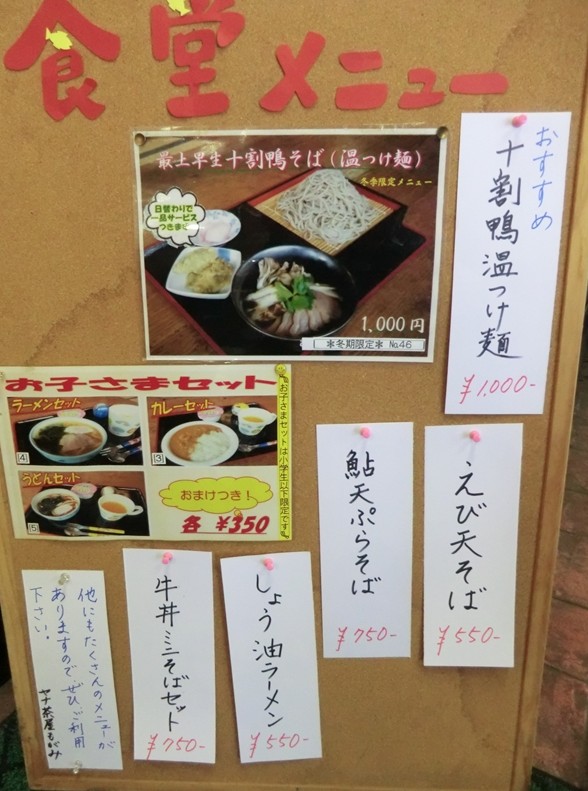 食堂メニュー
最上早生十割鴨そば（温つけ麺）
冬季限定メニュー
日替わりで
一品サービス
つきます
1,000円
＊冬期限定＊ №46
おすすめ
十割鴨温つけ麺
¥1,000-
お子さまセット
ラーメンセット
[4]
カレーセット
[3]
うどんセット
[5]
お子さまセットは小学生以下限定です
おまけつき！
各 ¥350
鮎天ぷらそば
¥750-
えび天そば
¥550-
牛丼ミニそばセット
¥750-
しょう油ラーメン
¥550-
他にもたくさんのメニューが
ありますので、ぜひご利用
下さい。
ヤナ茶屋もがみ